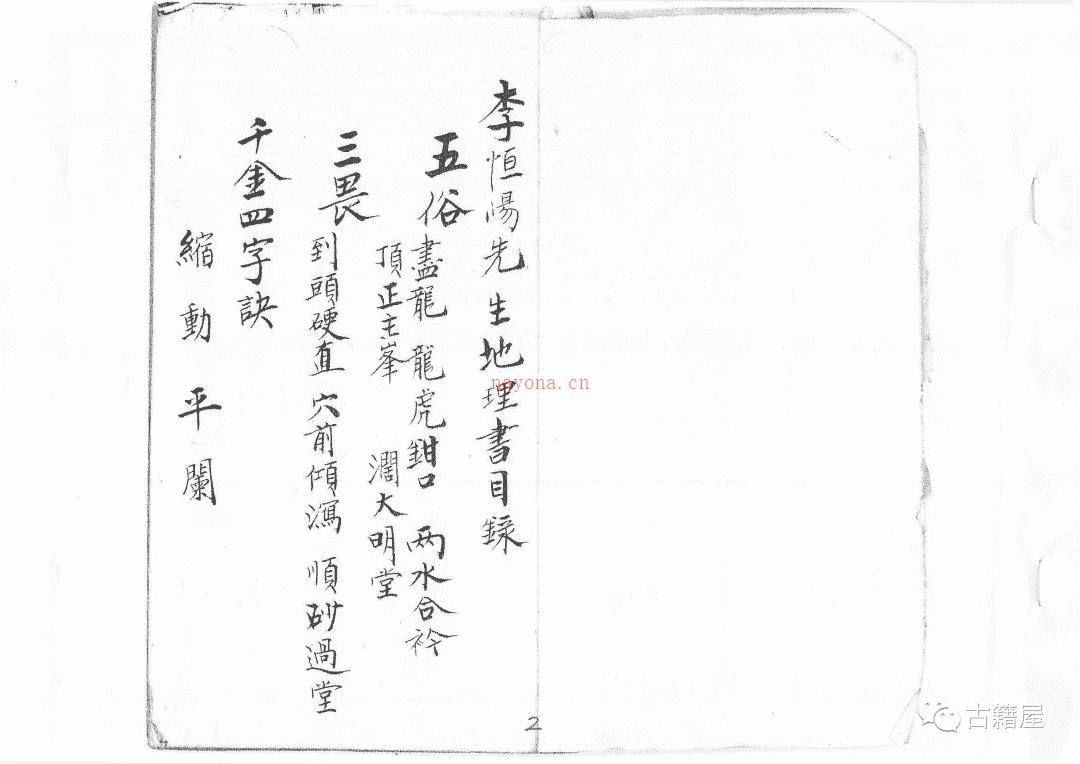 李恒陽先生地理書目錄
五俗 盡龍 龍虎鉗口 兩水合衿
頂正主峯 濶大明堂
三畏 到頭硬直 穴前傾瀉 順砂過堂
千金四字訣
縮動平闌
2
nayona.cn
古籍屋